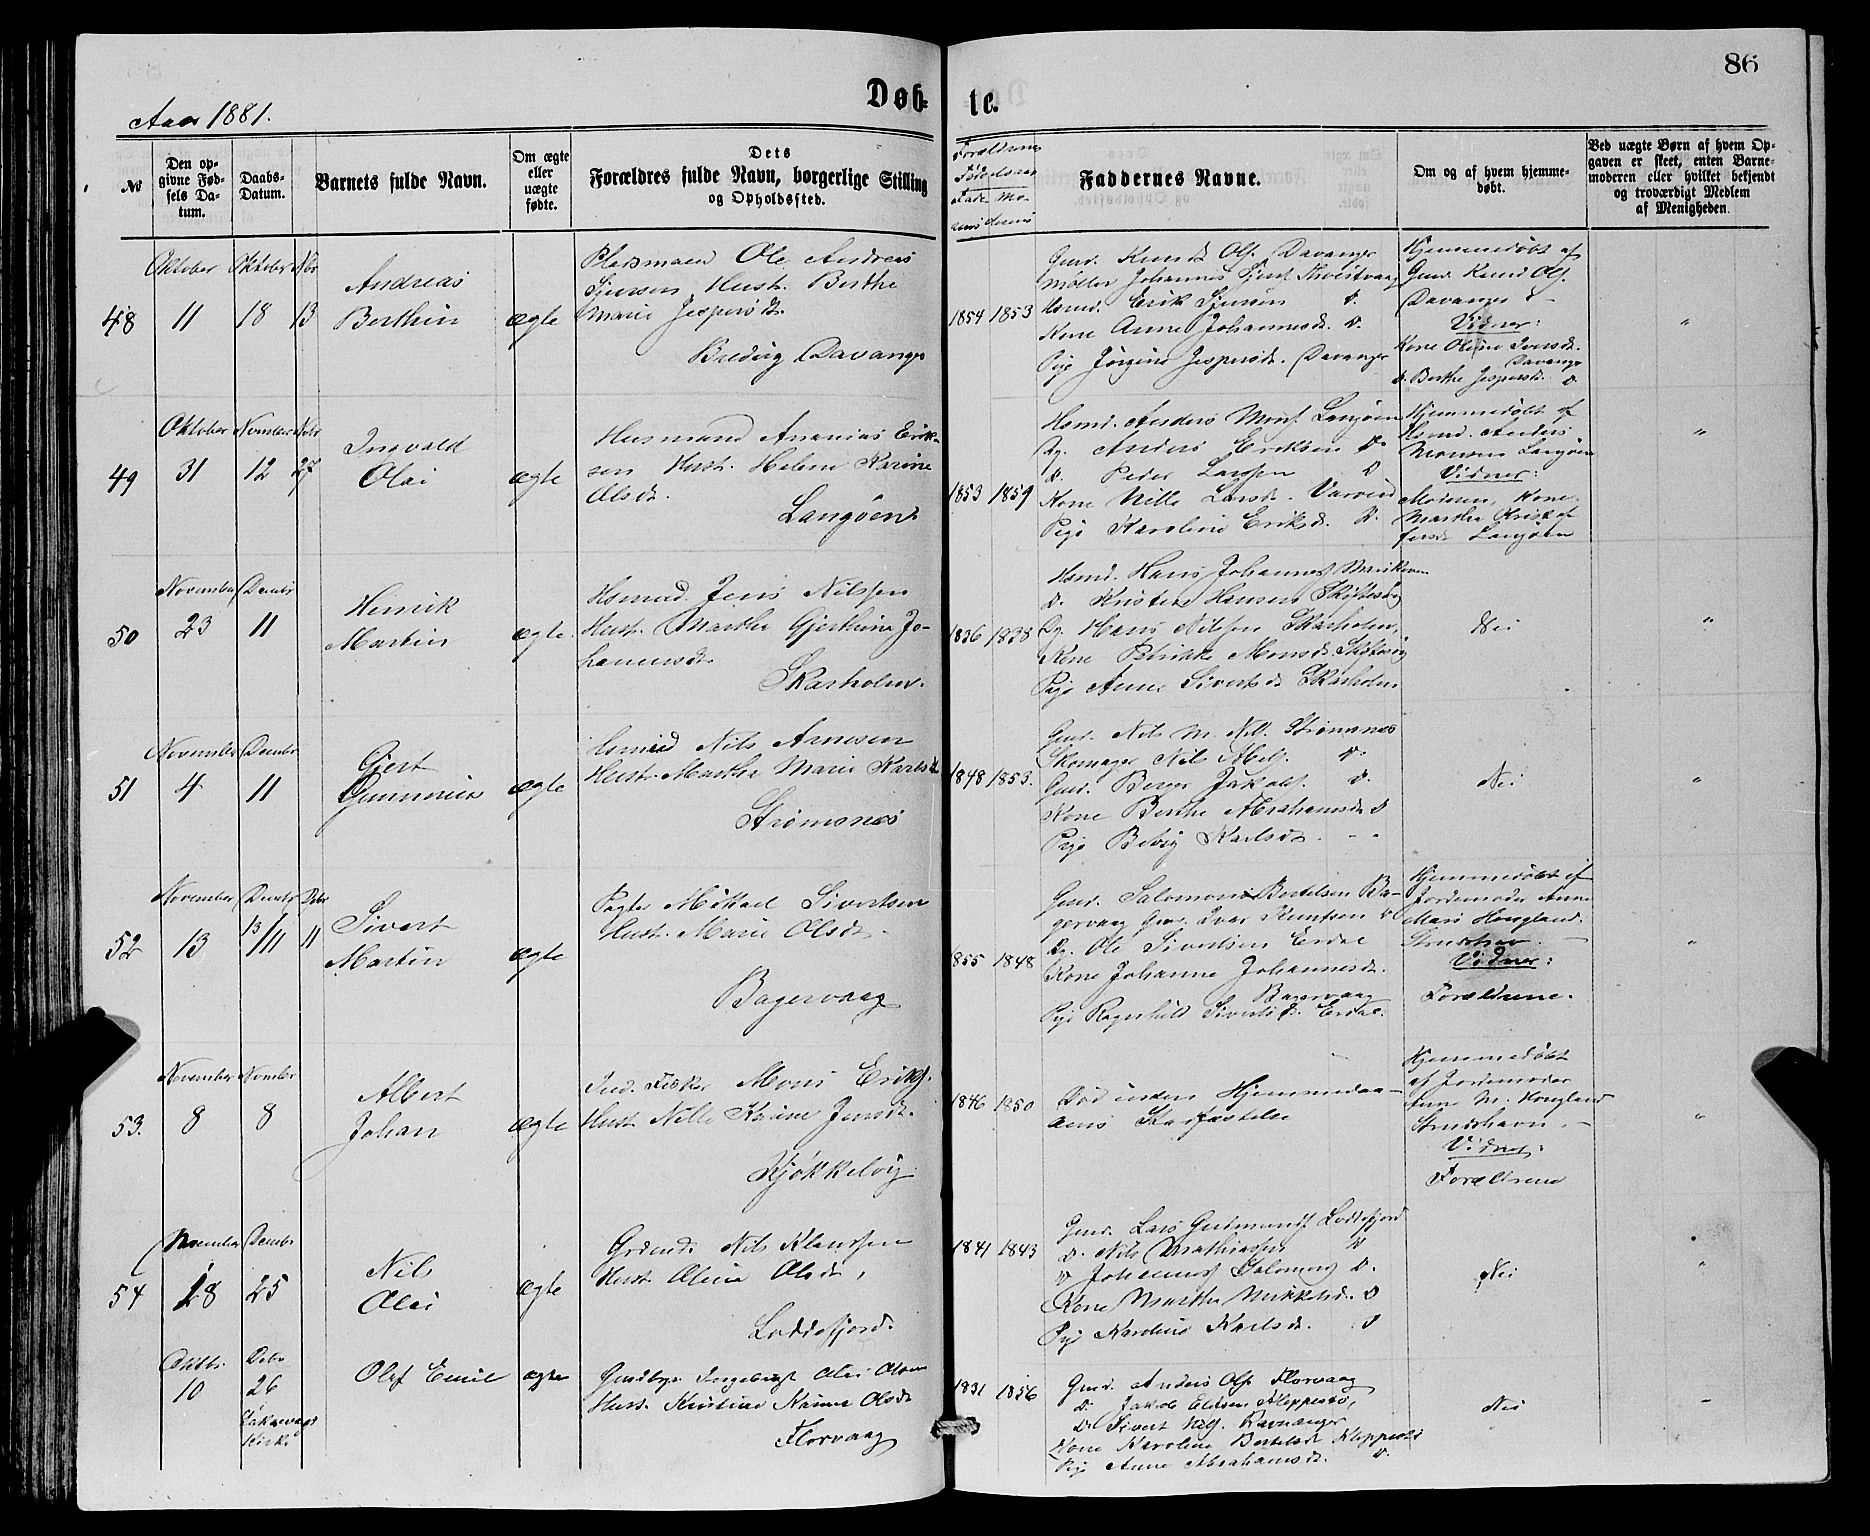 86
Døb-
te.
Aar 1881.
№
Den op-
givne Fød-
sels Da-
tum.
Daabs-
Datum.
Barnets fulde Navn.
Om ægte
eller
uægte
fødte.
Dets
Forældres fulde Navn, borgerlige Stilling
og Opholdssted.
Forældrenes
Fødselsaar
Faddernes Navne.
Om og af hvem hjemme-
døbt.
Ved uægte Børn af hvem Op-
gaven er skeet, enten Barne-
moderen eller hvilket bekjendt
og troværdigt Medlem
af Menigheden.
48
Oktober
11
Oktober
18
13
Andreas
Berthin
ægte
Pladsmand Ole Andreas
Sjursen Hust. Berthe
Marie Jespersdt.
Davanger
1854 1853
Gmd. Knud Ols. Davanger
Møller Johannes
Husmd. Erik Sjursen D.
Kone Anne Johannesdt. D.
Pige Jørgine Jespersdt. Davanger
Hjemmedøbt af
Gmd. Knud Ols.
Davanger
Vidner:
Kone Oline Iversdt.
Davanger
D. Berthe Jespersdt. D.
"
49
Oktober
31
November
12
27
Ingvald
Olai
ægte
Husmand Ananias Erik-
sen Hust. Helene Karine
Olsdt.
Langøen
1853 1859
Husmd. Anders Mons. Langøen
Ug. Anders Eriksen D.
D. Peder Larssen D
Kone Nille Larsdt.
Pige Karoline Eriksdt. D.
Hjemmedøbt af
Husmd. Anders
Monsen Langøen
Vidner:
Kone
Marthe Kristof
fersdt Langøen
"
50
November
23
Decembr
11
Henrik
Martin
ægte
Husmd. Jens Nilssen
Hust. Marthe Gjerthine Jo-
hannesdt.
Skarholm.
1836 1838
Husmd. Hans Johannes.
D. Kristen Hansen
Ug. Hans Nilssen Skarholm,
Kone Petrikke Monsdt.
Pige Anne Sivertsdt Skarholm
Nei
"
51
November
4
Decembr
11
Gjert
ægte
Husmd Nils Arnesen
Hust. Marthe Marie Karlsdt
Strømsnes
1848 1853.
Gmd. Nils M. Nils. Strømsnes
Skomager Nils D.
Gmd. Berger Jakobs. D.
Kone Berthe Abrahamsdt. D
Pige Karlsdt.
Nei
"
52
November
13
Decembr
13/11
Debr
11
Sivert
Martin
ægte
Mikael Sivertsen
Hust. Marie Olsdt.
Bagervaag
1855 1848
Gmd. Salomon Bertelsen Ba-
gervaag Gmd. Ivar Knutsen D
Ug. Ole Sivertsen Erdal
Kone Johanne Johannesdt.
Bagervaag
Pige Ragnhild Sivertsdt. Erdal.
Hjemmedøbt af
Jordemoder Anne
Mari Hougland.
Strudshavn
Vidner:
Forældrene.
"
53.
November
8
Novembr
8
Albert
Johan
ægte
Ind. Fisker Mons Eriks.
Hust. Nille Karine Jensdt.
Kjøkkelvig
1846 1850
Død inden Hjemmedaa-
bens Stadfæstelse
Hjemmedøbt
af Jordemoder
Anne M. Hougland
Strudshavn.
Vidner:
Forældrene
"
54
November
28
Decembr
25
Nils
Olai
ægte
Grdmd. Nils Klaussen
Hust. Oline Olsdt,
Loddefjord.
1841 1843
Gmd. Lars Gudmunds. Loddefjord
D. Nils Mathiassen D
D Johannes Salomons. D.
Kone Marthe Mikkelsdt. D
Pige Karoline Karlsdt. D
Nei
"
Oktbr.
10
Debr
26
Laksevaags
Kirke
Olaf Emil
ægte
Ingebrigt Olai Olsen
Hust. Kristine Karine Olsdt
Florvaag
1831 1856
Gmd. Anders Ols. Florvaag
D. Jakob Kleppestø,
D. Sivert Nils. Ravnanger
Kone Karoline Bertelsdt Kleppestø
Pige Anne Abrahamsdt. D.
Nei